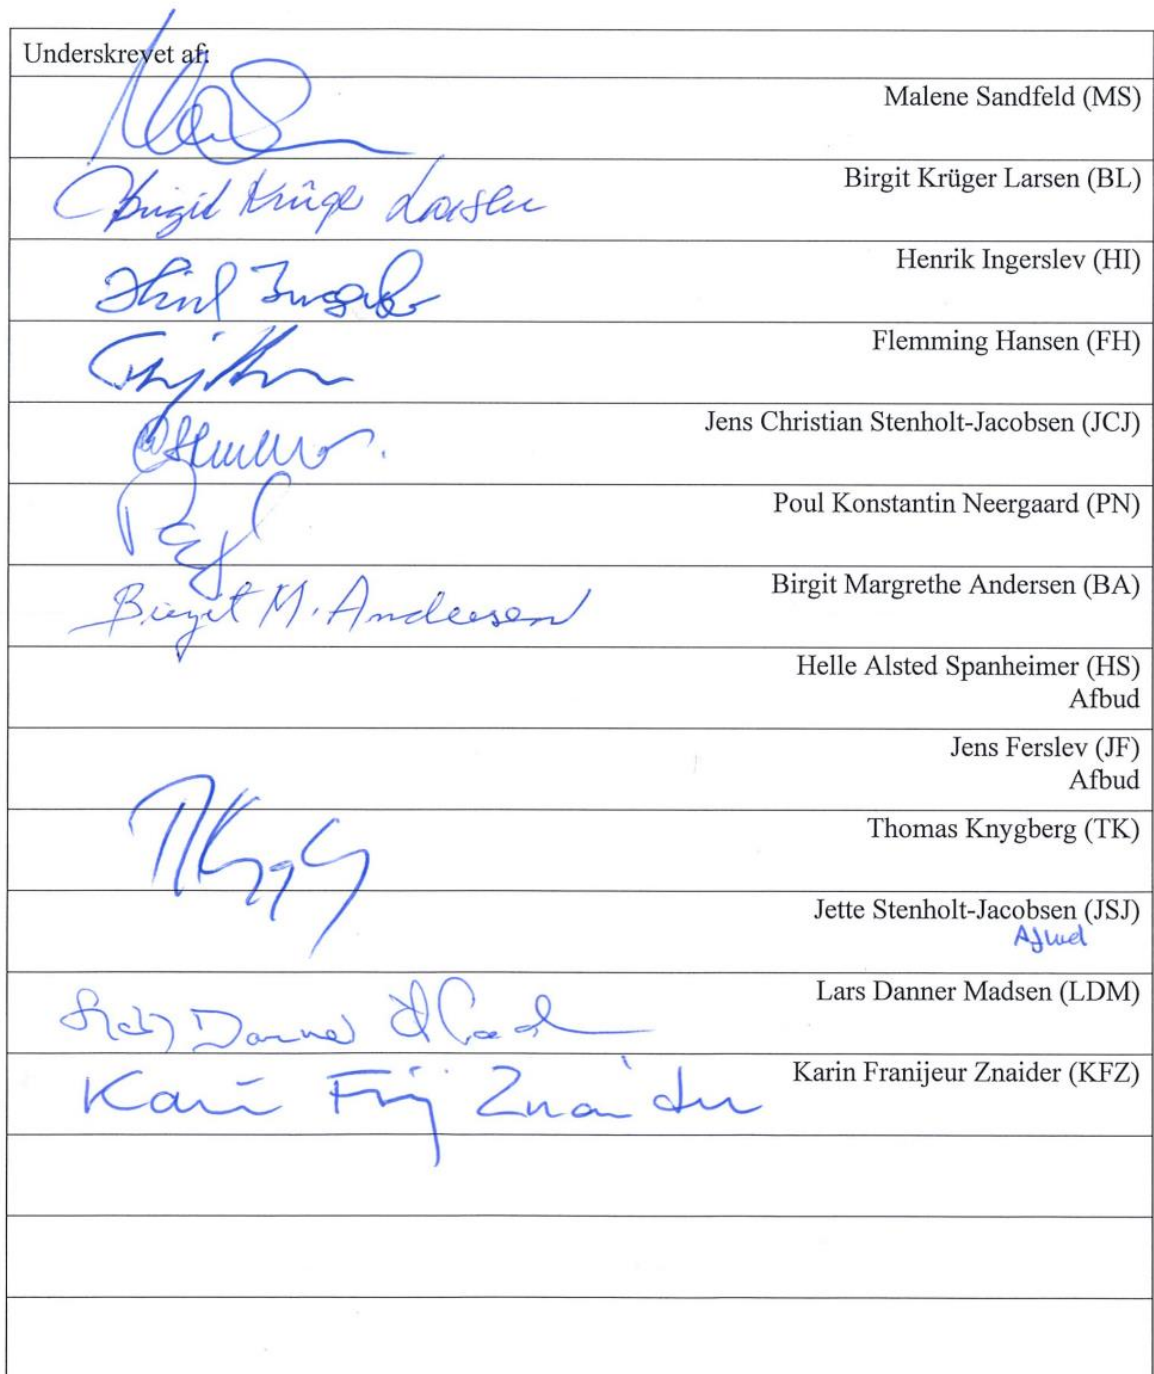 Underskrevet af:
Malene Sandfeld (MS)
Birgit Krüger Larsen
Birgit Krüger Larsen (BL)
Henrik Ingerslev (HI)
Flemming Hansen (FH)
Jens Christian Stenholt-Jacobsen (JCJ)
Poul Konstantin Neergaard (PN)
Birgit M. Andersen
Birgit Margrethe Andersen (BA)
Helle Alsted Spanheimer (HS)
Afbud
Jens Ferslev (JF)
Afbud
Thomas Knygberg (TK)
Jette Stenholt-Jacobsen (JSJ)
Afbud
Lars Danner Madsen (LDM)
Karin Franijeur Znaider (KFZ)